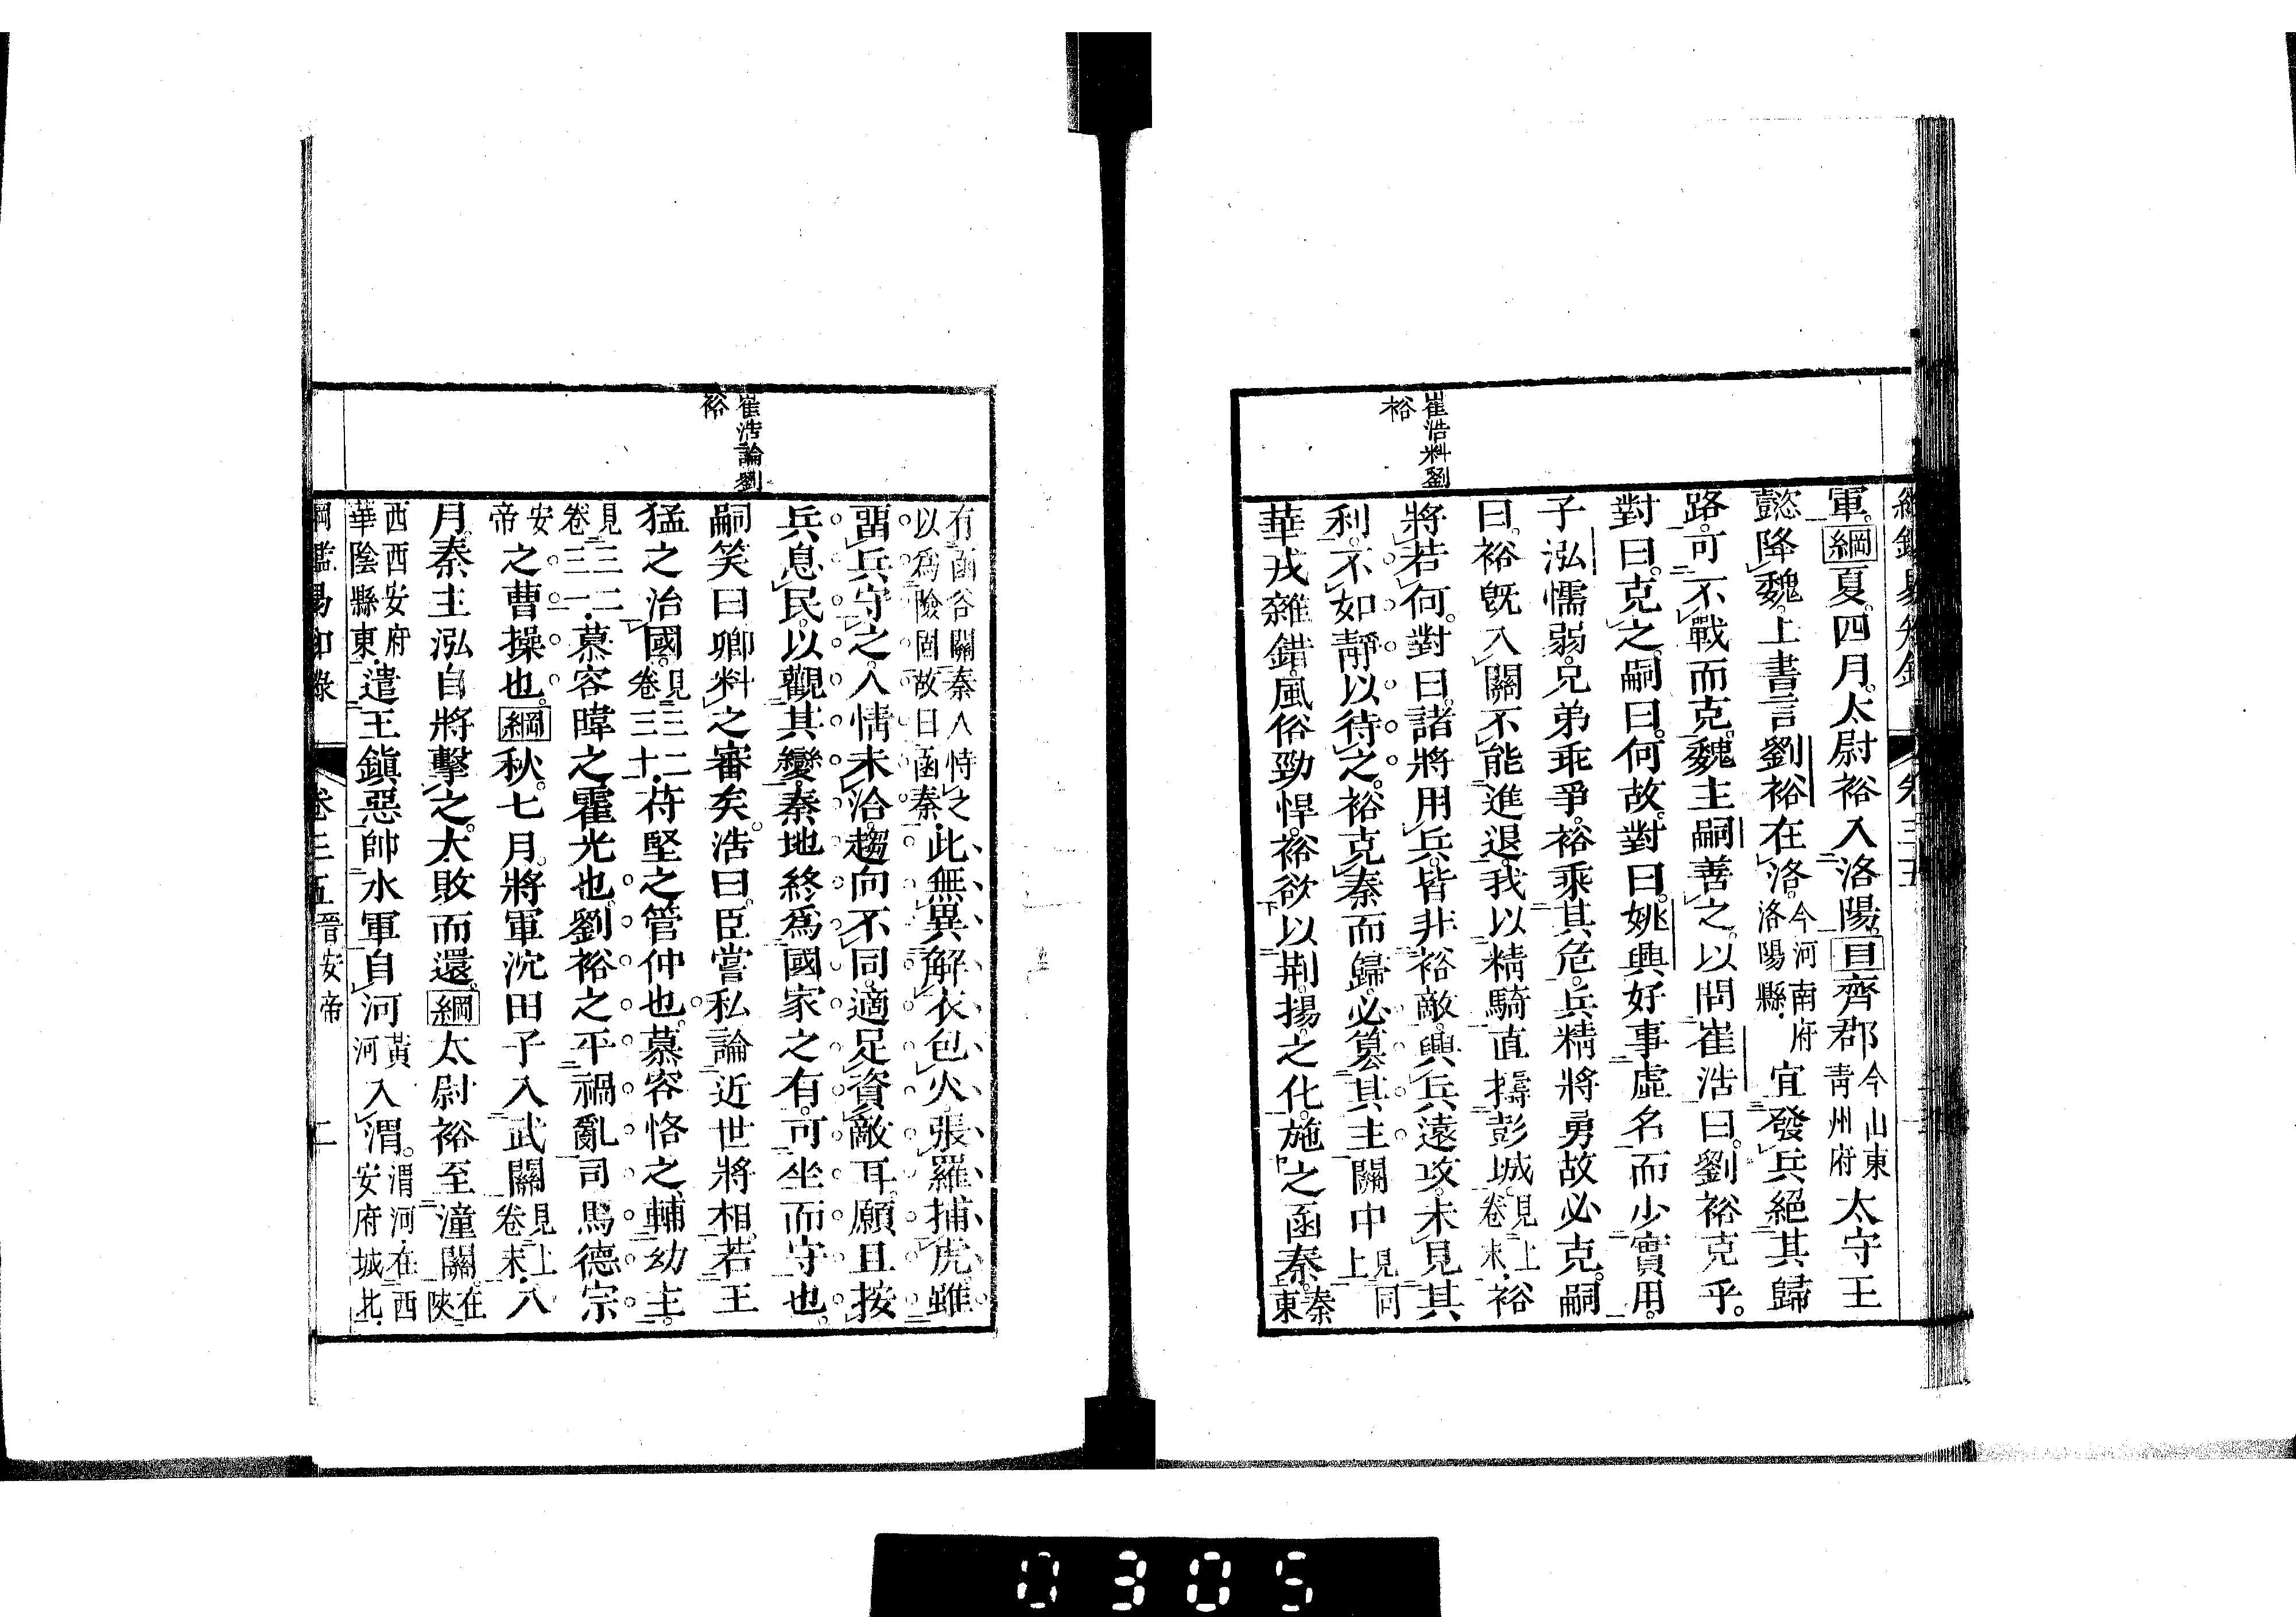 崔浩料劉
裕
軍。綱夏。四月。太尉裕入洛陽。目齊郡今山東青州府太守王
懿降魏。上書言劉裕在洛。今河南府洛陽縣。宜發兵絕其歸
路。可不戰而克。魏主嗣善之。以問崔浩曰。劉裕克乎。
對曰。克之。嗣曰。何故。對曰。姚興好事虛名而少實用。
子泓懦弱。兄弟乖爭。裕乘其危。兵精將勇故必克。嗣
曰。裕旣入關不能進退。我以精騎直擣彭城。見上卷末。裕
將若何。對曰。諸將用兵。皆非裕敵。興兵遠攻。未見其
利。不如靜以待之。裕克秦而歸。必簒其主關中見同上
華戎雜錯。風俗勁悍。裕欲以荆揚之化。施之函秦。秦東
有函谷關秦人恃之以爲險固故曰函秦。此無異解衣包火。張羅捕虎。雖
留兵守之。人情未洽。趨向不同。適足資敵耳。願且按
兵息民。以觀其變。秦地終爲國家之有。可坐而守也。
崔浩論劉
裕
嗣笑曰卿料之審矣。浩曰。臣嘗私論近世將相。若王
猛之治國。見三二卷三十。苻堅之管仲也。慕容恪之輔幼主。
見三二卷三一。慕容暐之霍光也。劉裕之平禍亂司馬德宗
安帝之曹操也。綱秋。七月。將軍沈田子入武關見上卷末。八
月。秦主泓自將擊之。大敗而還。綱太尉裕至潼關。在陝
西西安府華陰縣東。遣王鎮惡帥水軍自河黃河入渭。渭河在西安府城北。
綱鑑易知錄 卷三五 晉安帝 二